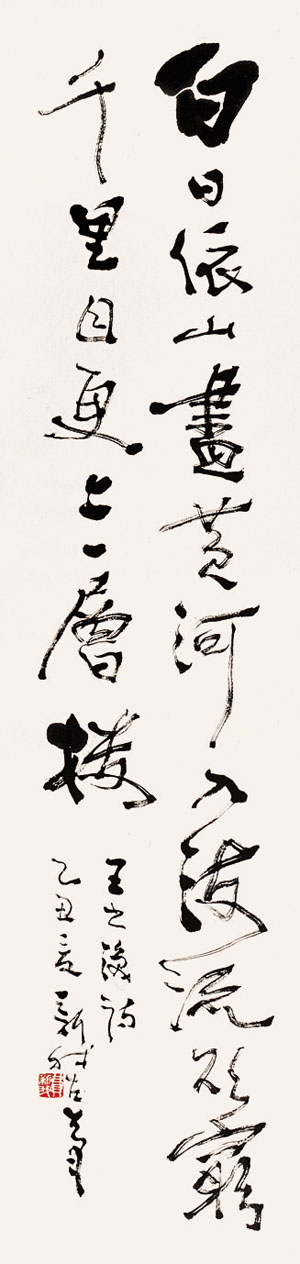 白日依山盡黄河入海流欲窮
千里目更上一層樓
王之渙詩
乙丑夏新我左筆